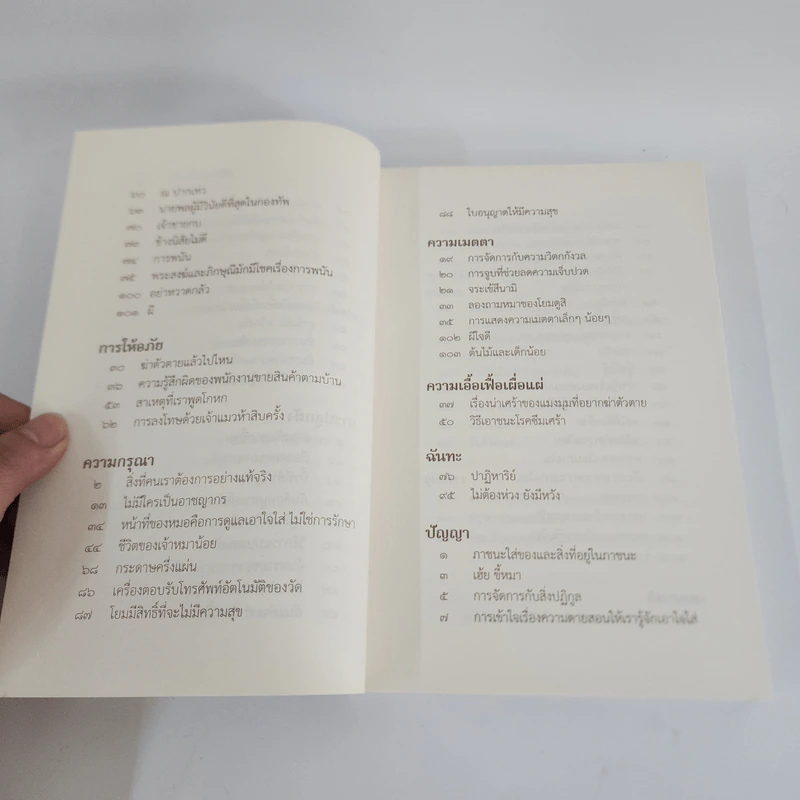 ๖๓ ณ ปากเหว
๖๓ นายพลผู้มีวินัยดีที่สุดในกองทัพ
๗๐ เจ้าชายกบ
๗๒ ช้างนิสัยไม่ดี
๗๔ การพนัน
๗๕ พระสงฆ์และภิกษุณีมักมีโชคเรื่องการพนัน
๑๐๐ อย่าหวาดกลัว
๑๐๑ ผี
การให้อภัย
๓๐ ฆ่าตัวตายแล้วไปไหน
๓๖ ความรู้สึกผิดของพนักงานขายสินค้าตามบ้าน
๕๓ สาเหตุที่เราพูดโกหก
๖๒ การลงโทษด้วยเจ้าแมวห้าสิบครั้ง
ความกรุณา
๒ สิ่งที่คนเราต้องการอย่างแท้จริง
๑๓ ไม่มีใครเป็นอาชญากร
๓๔ หน้าที่ของหมอคือการดูแลเอาใจใส่ ไม่ใช่การรักษา
๔๔ ชีวิตของเจ้าหมาน้อย
๖๘ กระดาษครึ่งแผ่น
๘๖ เครื่องตอบรับโทรศัพท์อัตโนมัติของวัด
๘๗ โยมมีสิทธิ์ที่จะไม่มีความสุข
๘๘ ใบอนุญาตให้มีความสุข
ความเมตตา
๑๙ การจัดการกับความวิตกกังวล
๒๐ การจูบที่ช่วยลดความเจ็บปวด
๒๑ จระเข้สึนามิ
๓๓ ลองถามหมาของโยมดูสิ
๓๕ การแสดงความเมตตาเล็กๆ น้อยๆ
๑๐๒ ผีใจดี
๑๐๓ ต้นไม้และเด็กน้อย
ความเอื้อเฟื้อเผื่อแผ่
๓๗ เรื่องน่าเศร้าของแมงมุมที่อยากฆ่าตัวตาย
๕๐ วิธีเอาชนะโรคซึมเศร้า
ฉันทะ
๗๖ ปาฏิหาริย์
๙๕ ไม่ต้องห่วง ยังมีหวัง
ปัญญา
๑ ภาชนะใส่ของและสิ่งที่อยู่ในภาชนะ
๓ เฮ้ย ขี้หมา
๕ การจัดการกับสิ่งปฏิกูล
๗ การเข้าใจเรื่องความตายสอนให้เรารู้จักเอาใจใส่